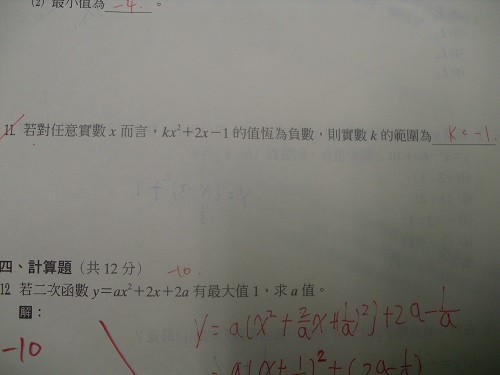 (2) 最小值為 -4 。
11. 若對任意實數 x 而言，kx²+2x-1 的值恆為負數，則實數 k 的範圍為 k<-1.
四、計算題（共 12 分） -10.
12. 若二次函數 y=ax²+2x+2a 有最大值 1，求 a 值。
解：
y = a(x²+2/a x+(1/a)²)+2a-1/a
-10
= a(x+1/a)²+(2a-1/a)